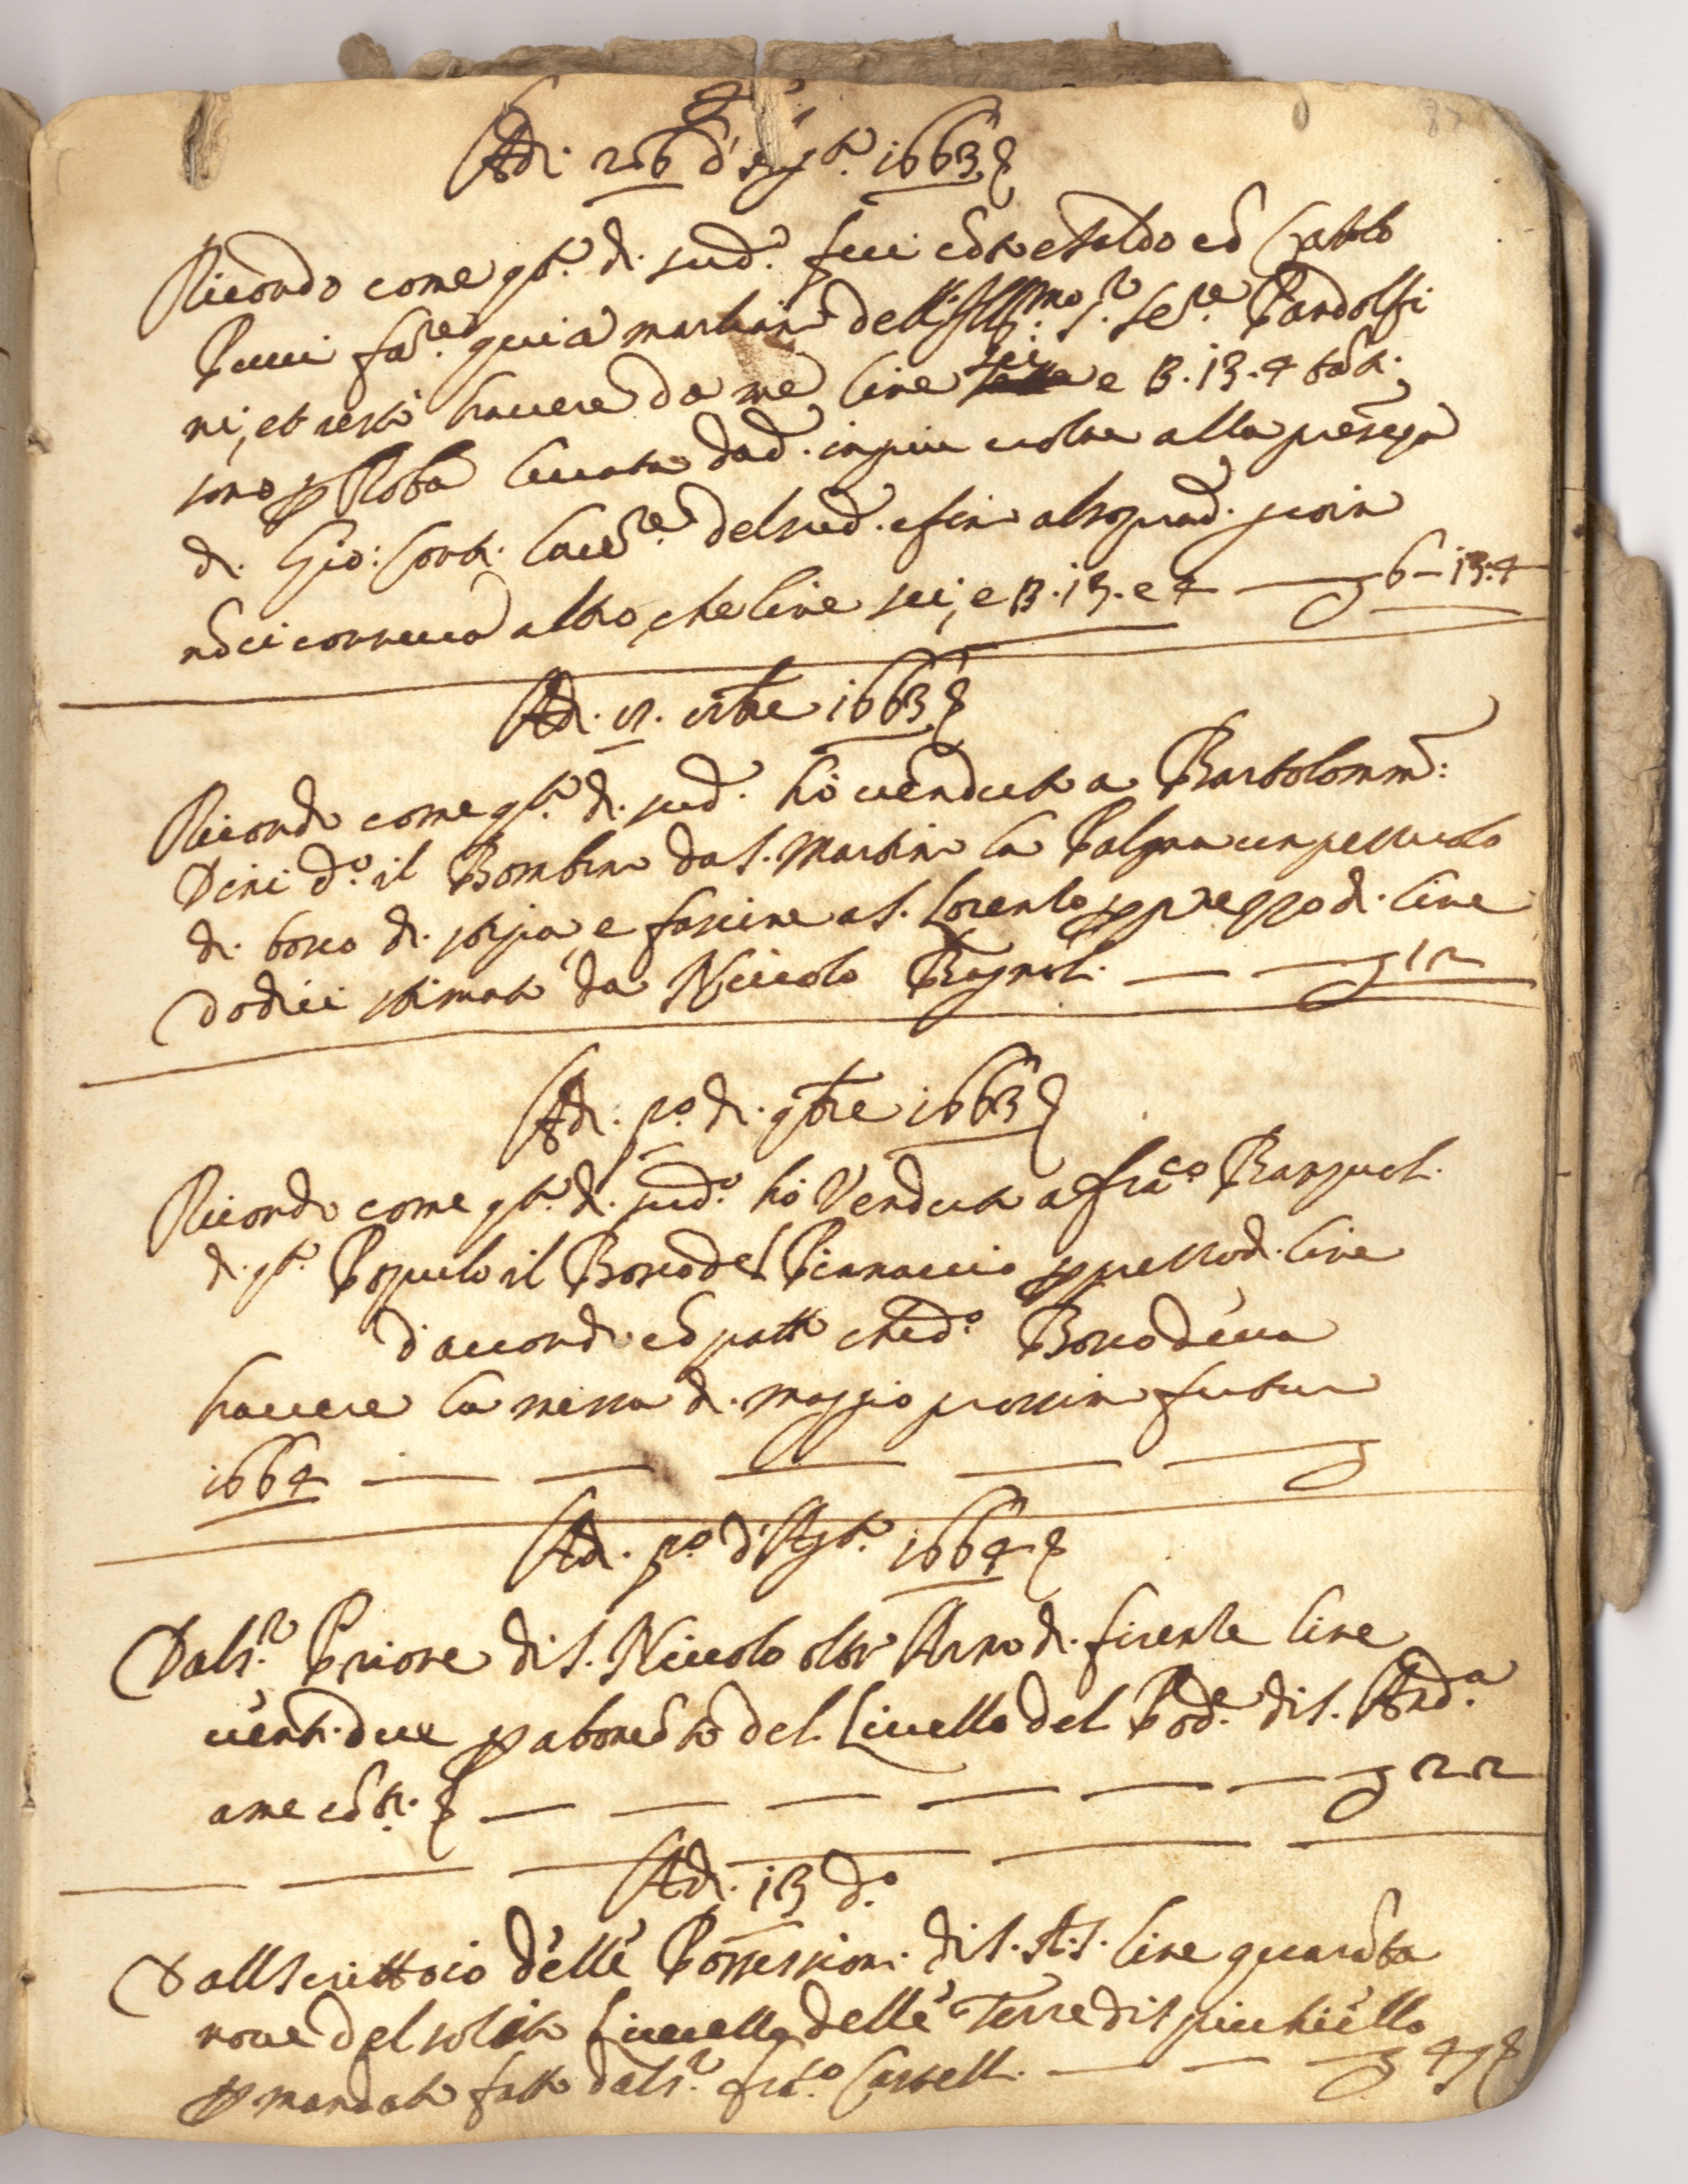 Adi. 26 d'Ag.to 1663
Ricordo come q.to dì sud.o feci cõto e saldo cõ Carlo
Pucci fa.re qui a Martiano dell'Ill.mo S.r Se.re Pandolfi
ni, et restò havere da me lire sei e ß. 13. 4 tãti
sono p Roba levata da d. in più volte alla presẽza
di Gio: Conti Lav.re del sud. e fino al soprad. giorno
nõ ci correva altro, che lire sei, e ß. 13. e 4 — 6 — 13. 4
Adi. 17. 7bre 1663
Ricordo come q.to dì sud.o hò venduto a Bartolomm:
Dini d.o il Bombino da S. Martino la Palma un pezzuolo
di bosco di stipa, e fascine a S. Lorenzo p prezzo di lire
dodici stimato da Niccolo Bagnoli — 12
Adi. p.o di 9bre 1663
Ricordo come q.to dì sud.o hò Venduto a Frã.co Banzuoli
di q.to Popolo il Bosco del Pennaccio p prezzo di lire
d'accordo cõ patto che d.o Bosco deva
havere la messa di maggio prossimo futuro
1664
Adi. p.o d'Ag.to 1664
Dal S.r Priore di S. Niccolo oltr'Arno di Firenze lire
venti due p a bonc.to del Livello del Pod.e di S. And.a
a me cõti. — 22
Adi. 13 d.o
Dallo scrittoio delle Possessioni di S. A. S. lire quarãta
nove del solito Livello delle Terre di Spicchiello
p mandato fatto dal S.r Frã.co Castelli — 49